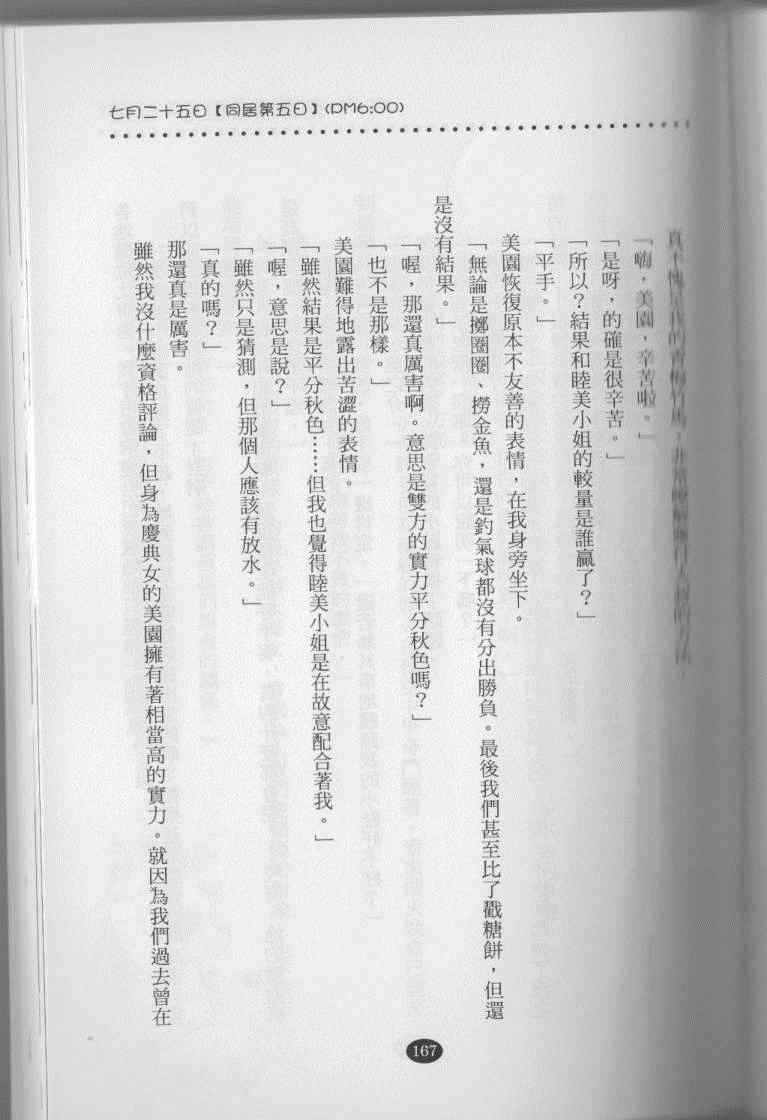 七月二十五日【同居第五日】(PM6:00)
「嗨，美園，辛苦啦。」
「是呀，的確是很辛苦。」
「所以？結果和睦美小姐的較量是誰贏了？」
「平手。」
美園恢復原本不友善的表情，在我身旁坐下。
「無論是擲圈圈、撈金魚，還是釣氣球都沒有分出勝負。最後我們甚至比了戳糖餅，但還
是沒有結果。」
「喔，那還真厲害啊。意思是雙方的實力平分秋色嗎？」
「也不是那樣。」
美園難得地露出苦澀的表情。
「雖然結果是平分秋色……但我也覺得睦美小姐是在故意配合著我。」
「喔，意思是說？」
「雖然只是猜測，但那個人應該有放水。」
「真的嗎？」
那還真是厲害。
雖然我沒什麼資格評論，但身為慶典女的美園擁有著相當高的實力。就因為我們過去曾在
167